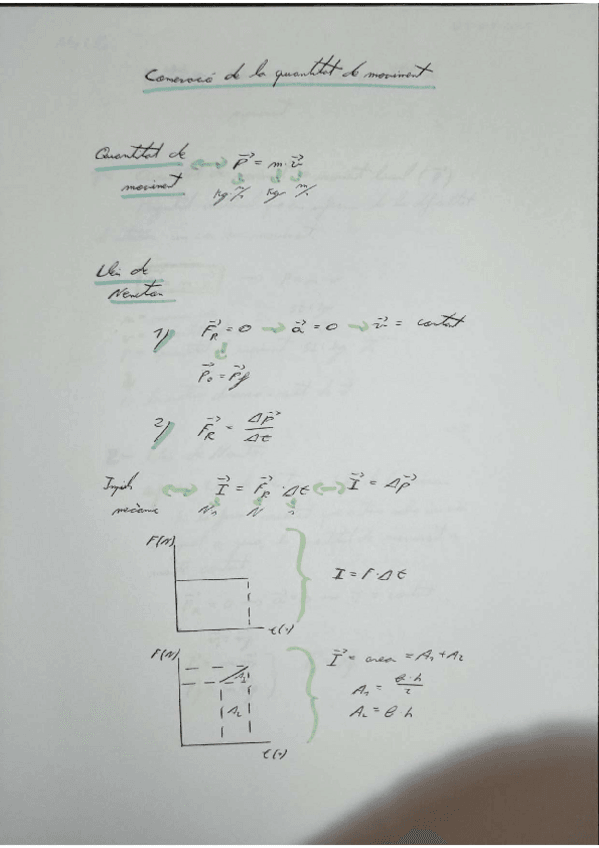 Conservació de la quantitat de moviment
Quantitat de moviment ↔ p⃗ = m · v⃗
kg m/s kg m/s
Llei de
Newton
1) F⃗R = 0 → a⃗ = 0 → v⃗ = constant
p⃗0 = p⃗f
2) F⃗R = Δp⃗/Δt
Impuls mecànic ↔ I⃗ = F⃗R · Δt ↔ I⃗ = Δp⃗
N·s N s
F(N)
I = F · Δt
t(s)
F(N)
I⃗ = area = A1 + A2
A1 = b · h / 2
A2 = b · h
A1
A2
t(s)